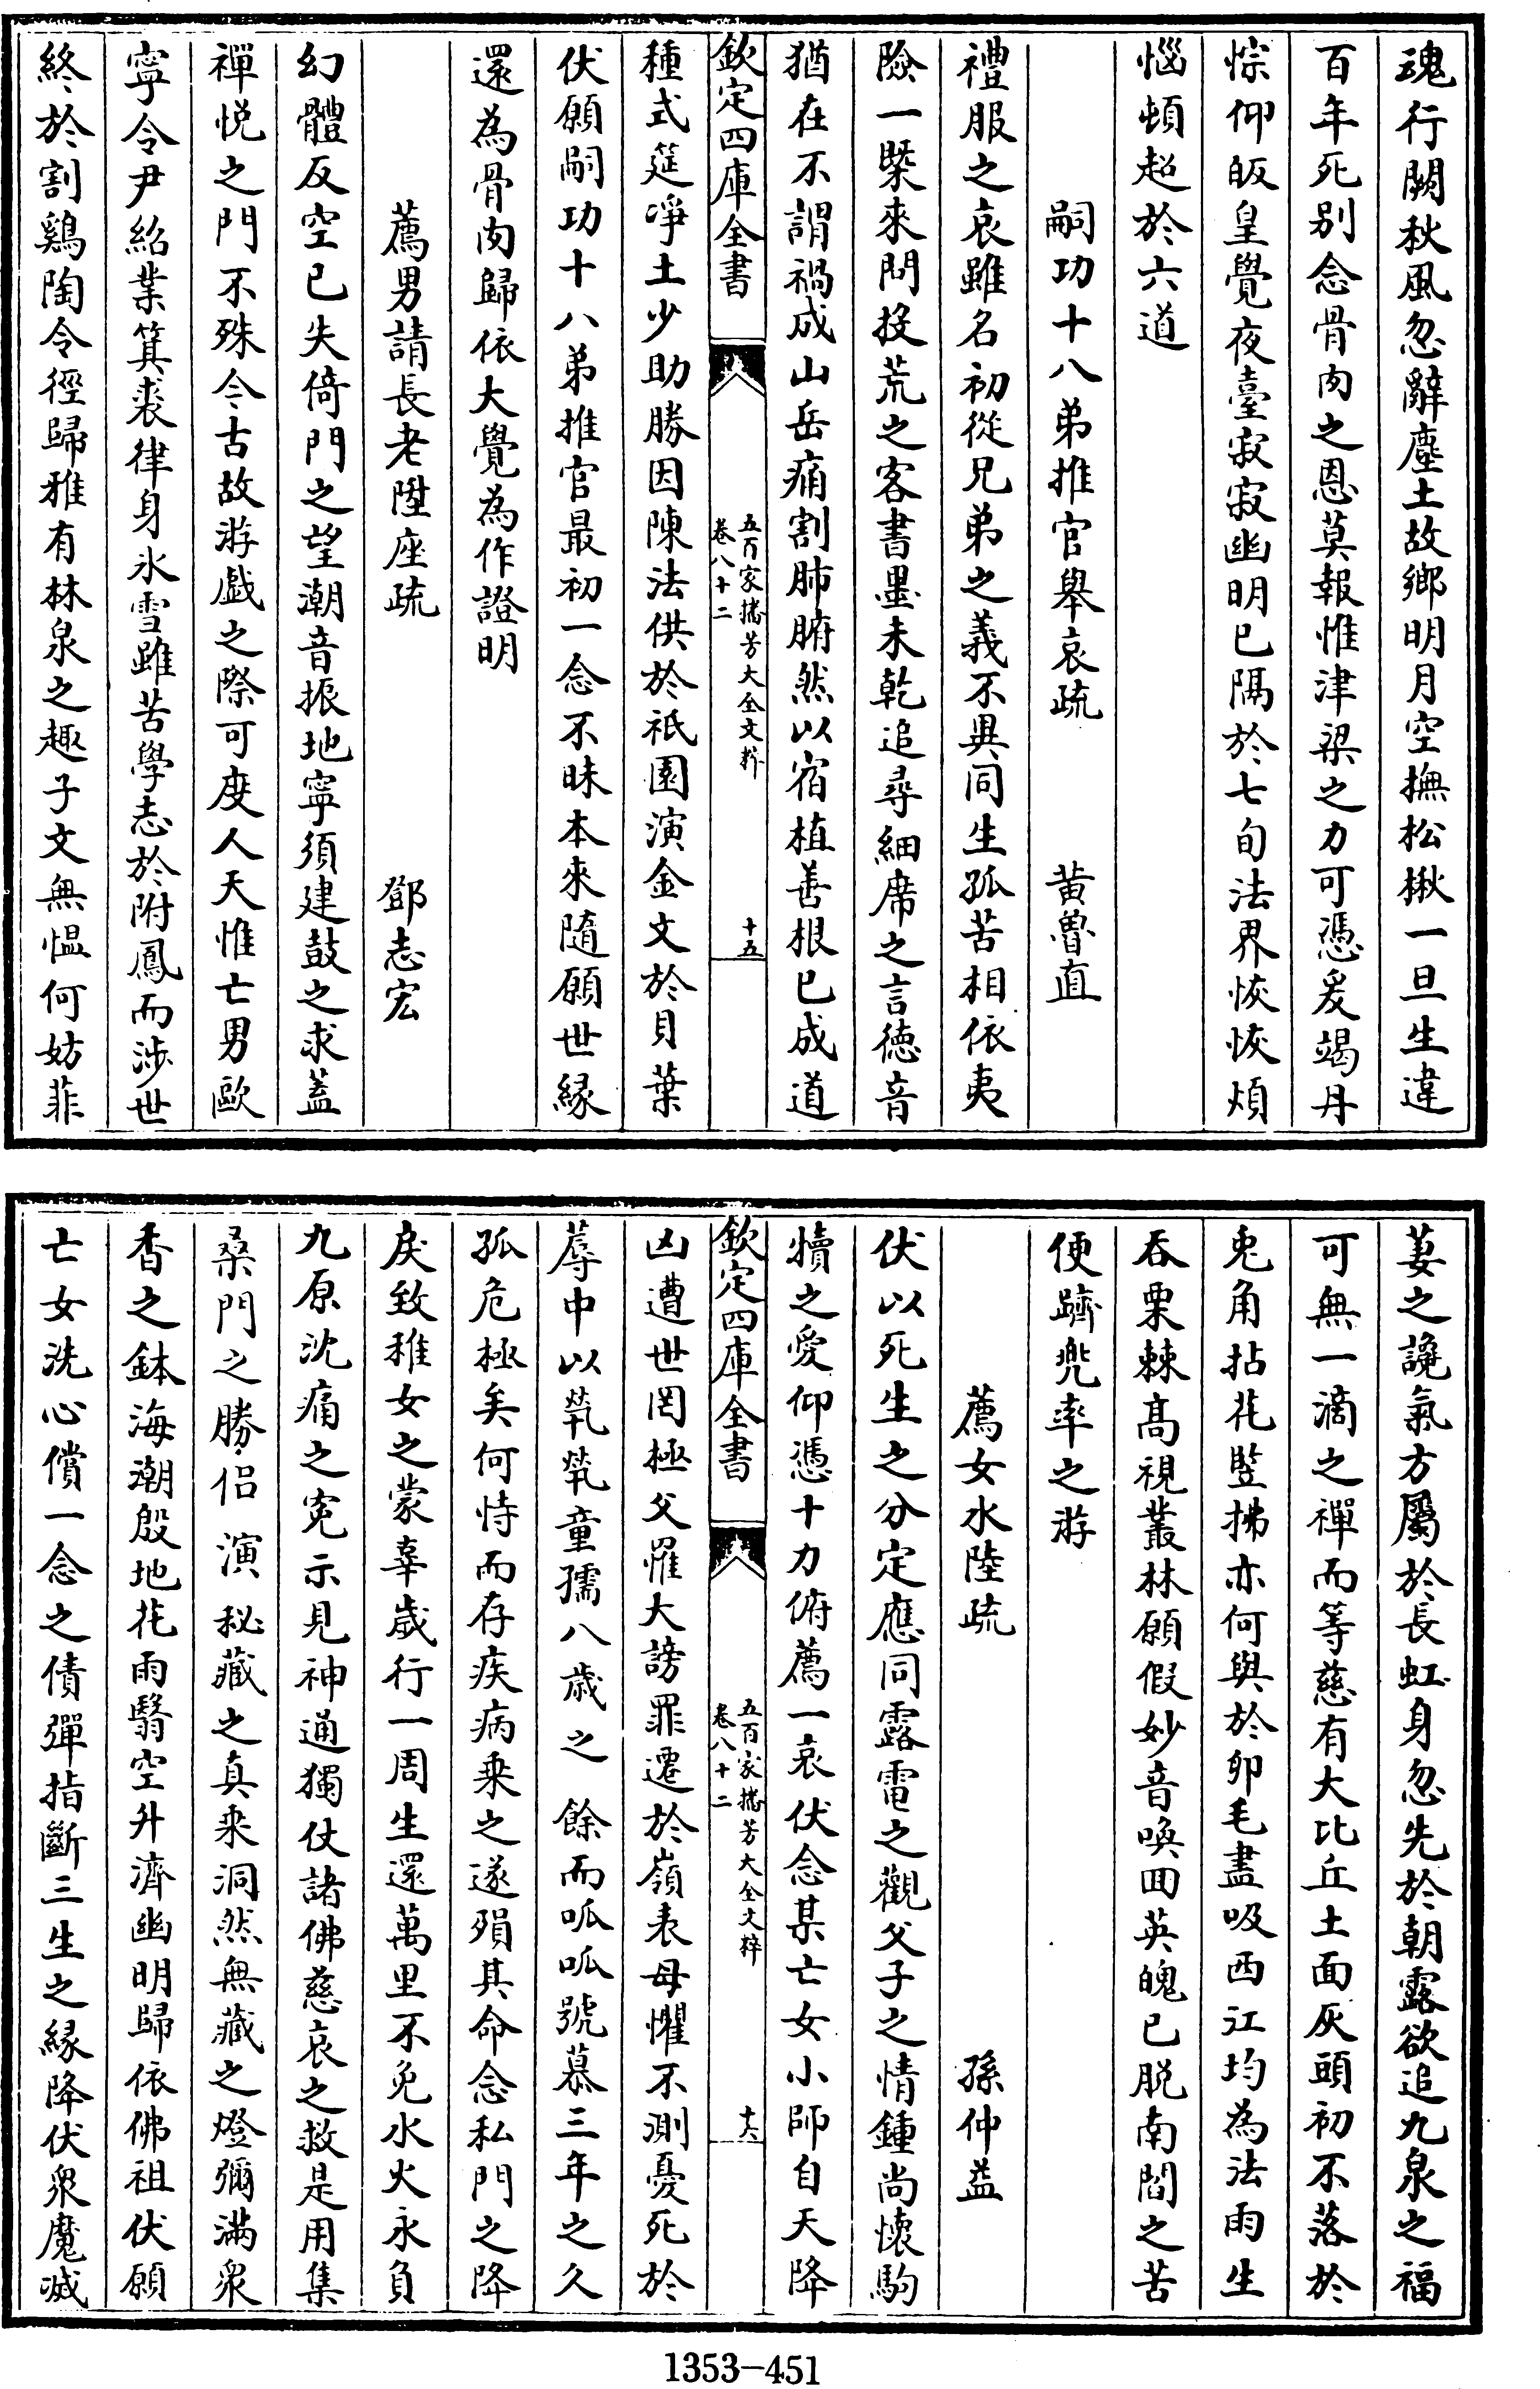 魂行闕秋風忽辭塵土故鄉明月空撫松楸一旦生違
百年死别念骨肉之恩莫報惟津梁之力可憑爰竭丹
悰仰皈皇覺夜臺寂寂幽明已隔於七旬法界恢恢煩
惱頓超於六道
嗣功十八弟推官舉哀疏 黄魯直
禮服之哀雖名初從兄弟之義不異同生孤苦相依夷
險一槩來問投荒之客書墨未乾追尋細席之言德音
猶在不謂禍成山岳痛割肺腑然以宿植善根已成道
欽定四庫全書
五百家播芳大全文粹
卷八十二
十五
種式筵淨土少助勝因陳法供於祇園演金文於貝葉
伏願嗣功十八弟推官最初一念不昧本來隨願世緣
還為骨肉歸依大覺為作證明
薦男請長老陞座疏 鄧志宏
幻體反空已失倚門之望潮音振地寧須建鼓之求蓋
禪悦之門不殊今古故游戲之際可度人天惟亡男歐
寧令尹紹業箕裘律身氷雪雖苦學志於附鳳而涉世
終於割鷄陶令徑歸雅有林泉之趣子文無愠何妨菲
萋之讒氣方屬於長虹身忽先於朝露欲追九泉之福
可無一滴之禪而等慈有大比丘土面灰頭初不落於
兎角拈花竪拂亦何與於卵毛盡吸西江均為法雨生
吞栗棘髙視叢林願假妙音喚回英魄已脱南閻之苦
便躋兜率之游
薦女水陸疏 孫仲益
伏以死生之分定應同露電之觀父子之情鍾尚懷駒
犢之愛仰憑十力俯薦一哀伏念某亡女小師自天降
欽定四庫全書
五百家播芳大全文粹
卷八十二
十六
凶遭世罔極父罹大謗罪遷於嶺表母懼不測憂死於
蓐中以煢煢童孺八歳之餘而呱呱號慕三年之久
孤危極矣何恃而存疾病乗之遂殞其命念私門之降
戾致稚女之蒙辜歳行一周生還萬里不免水火永負
九原沈痛之寃示見神通獨仗諸佛慈哀之救是用集
桑門之勝侣演秘藏之真乗洞然無藏之燈彌滿衆
香之鉢海潮殷地花雨翳空升濟幽明歸依佛祖伏願
亡女洗心償一念之債彈指斷三生之緣降伏衆魔滅
1353-451